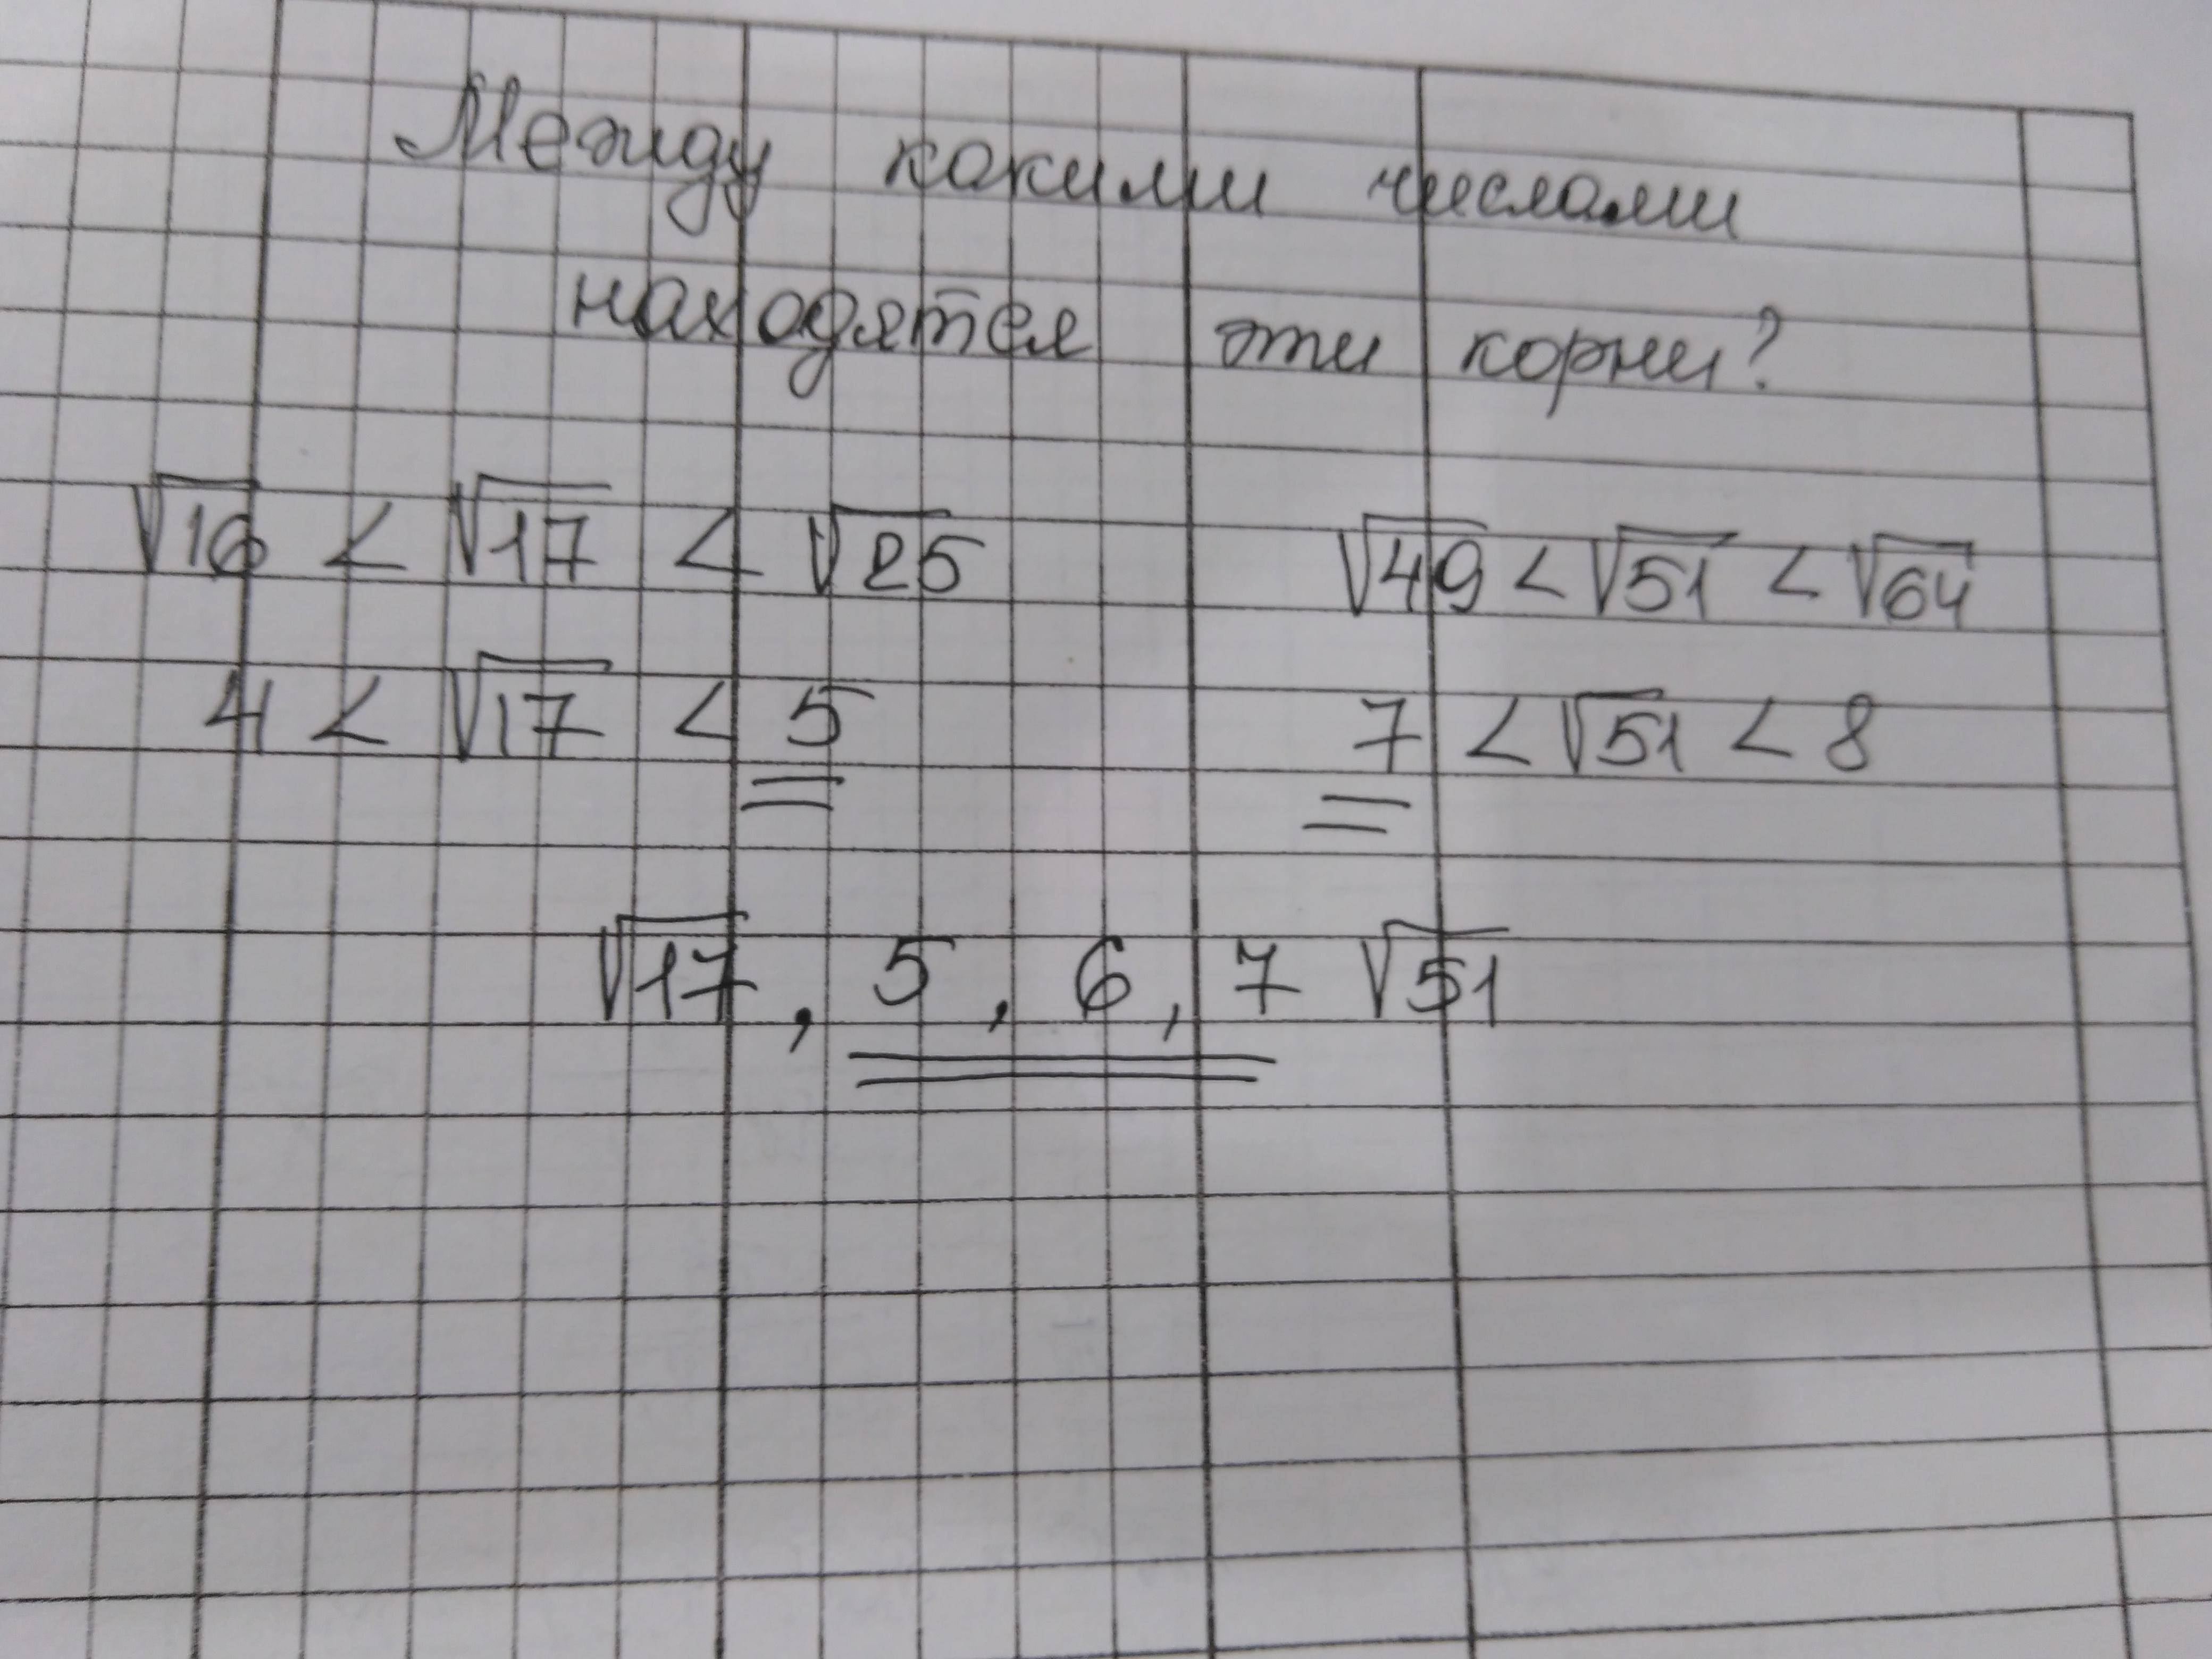 Между какими числами
находятся эти корни?
√16 < √17 < √25
√49 < √51 < √64
4 < √17 < 5
7 < √51 < 8
√17, 5, 6, 7 √51